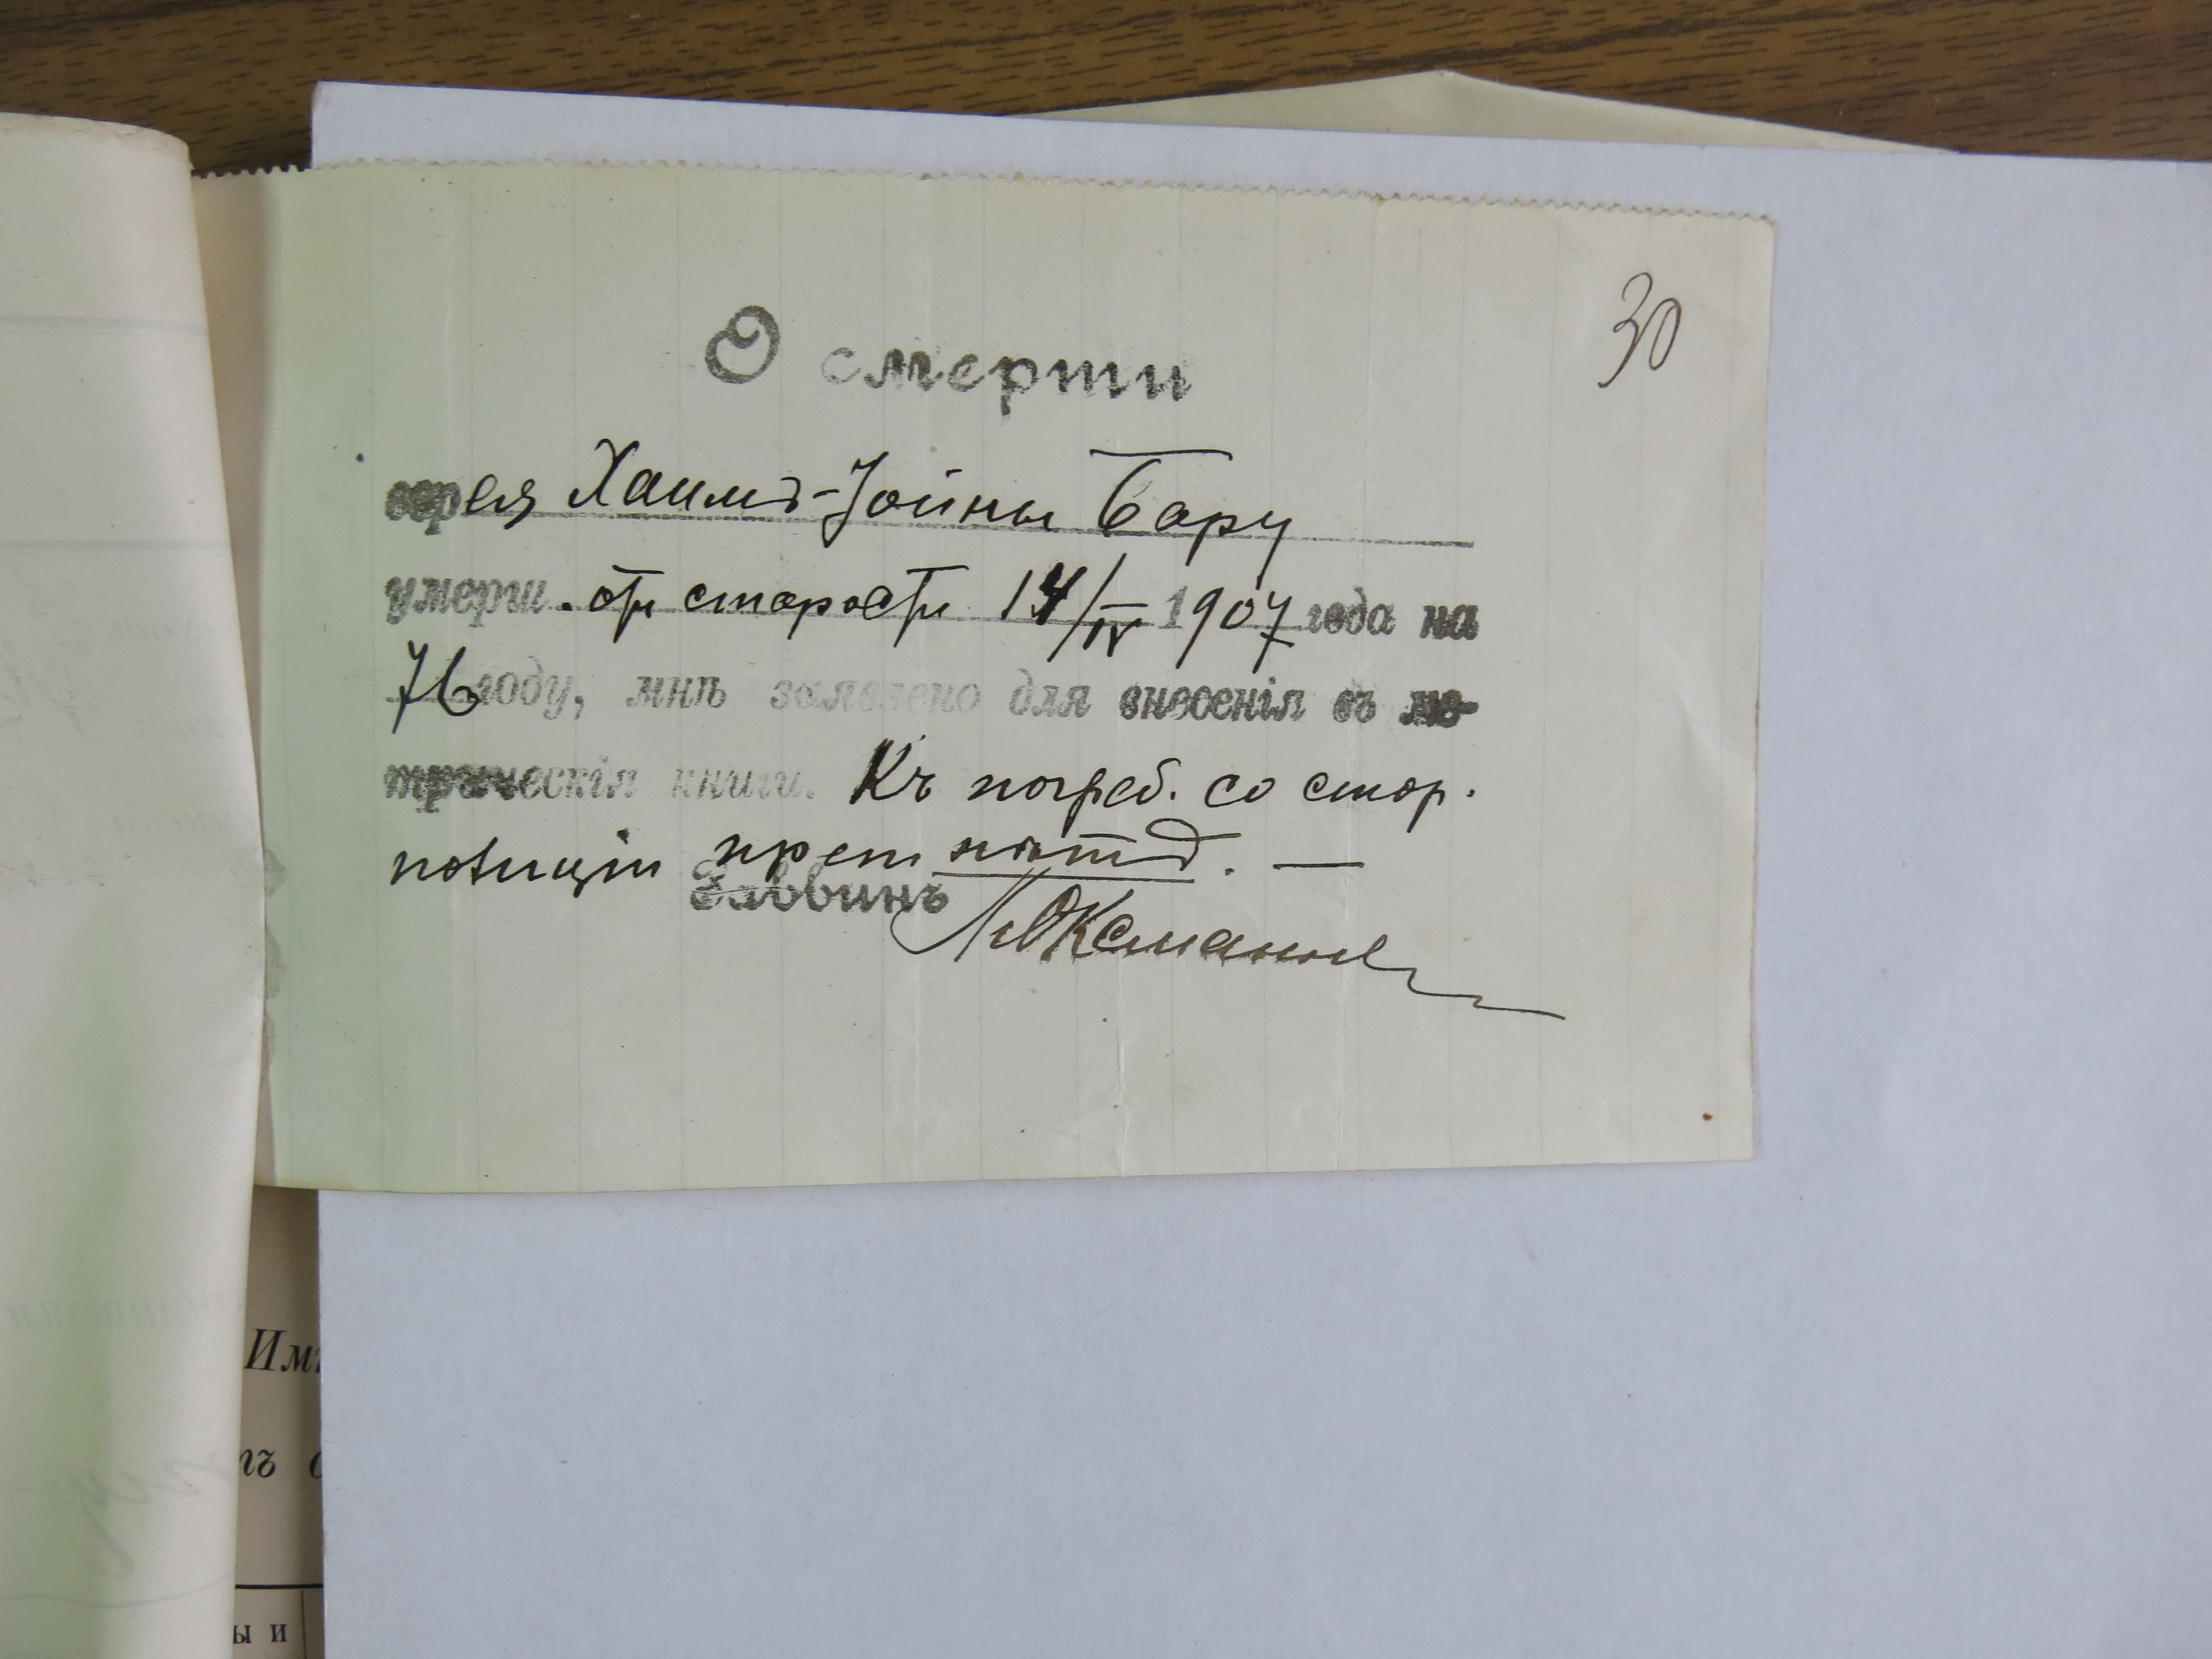 30
О смерти
еврея Хаимъ-Іойны Бару
умерш. отъ старости 14/IV 1907 года на
76 году, мнѣ заявлено для внесенія въ ме-
трическія книги. Къ погреб. со стор.
полиціи преп нѣтъ. —
Раввинъ
Им
ъ с
ы и